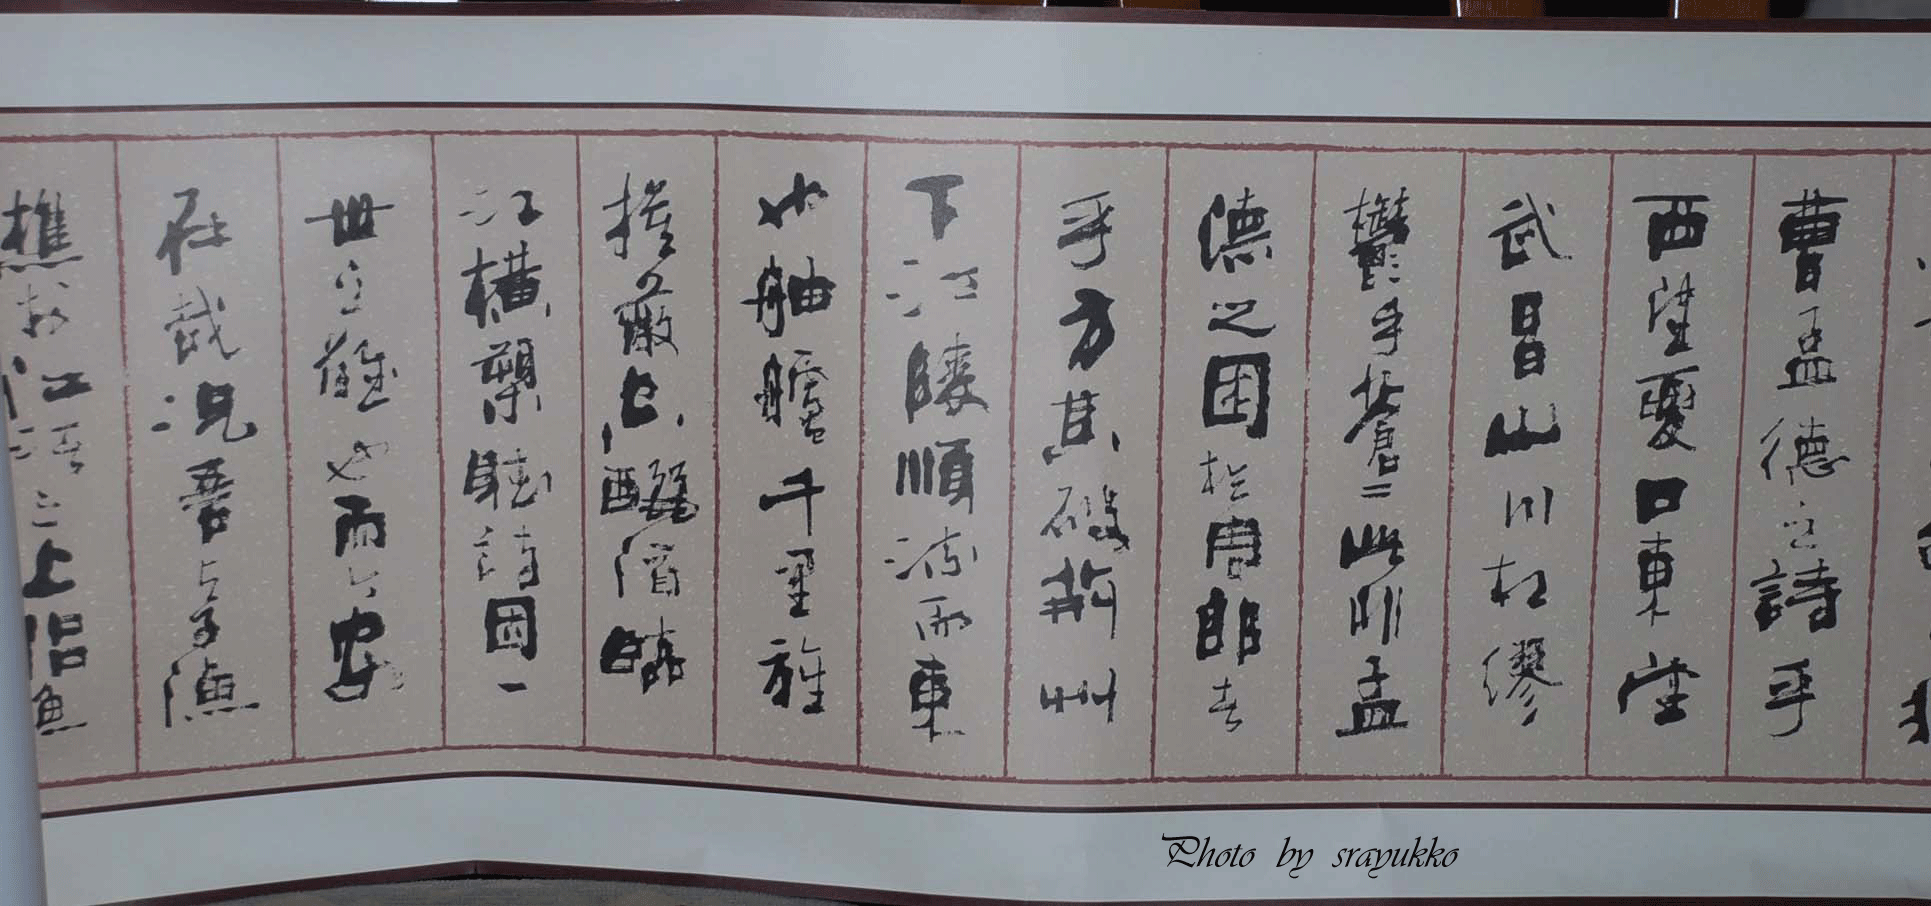 曹孟德之詩乎
西望夏口東望
武昌山川相繆
鬱乎蒼〻此非孟
德之困於周郎者
乎方其破荊州
下江陵順流而東
也舳艫千里旌
旗蔽空釃酒臨
江橫槊賦詩固一
世之雄也而今安
在哉況吾与子漁
樵於江渚之上侣魚
Photo by srayukko